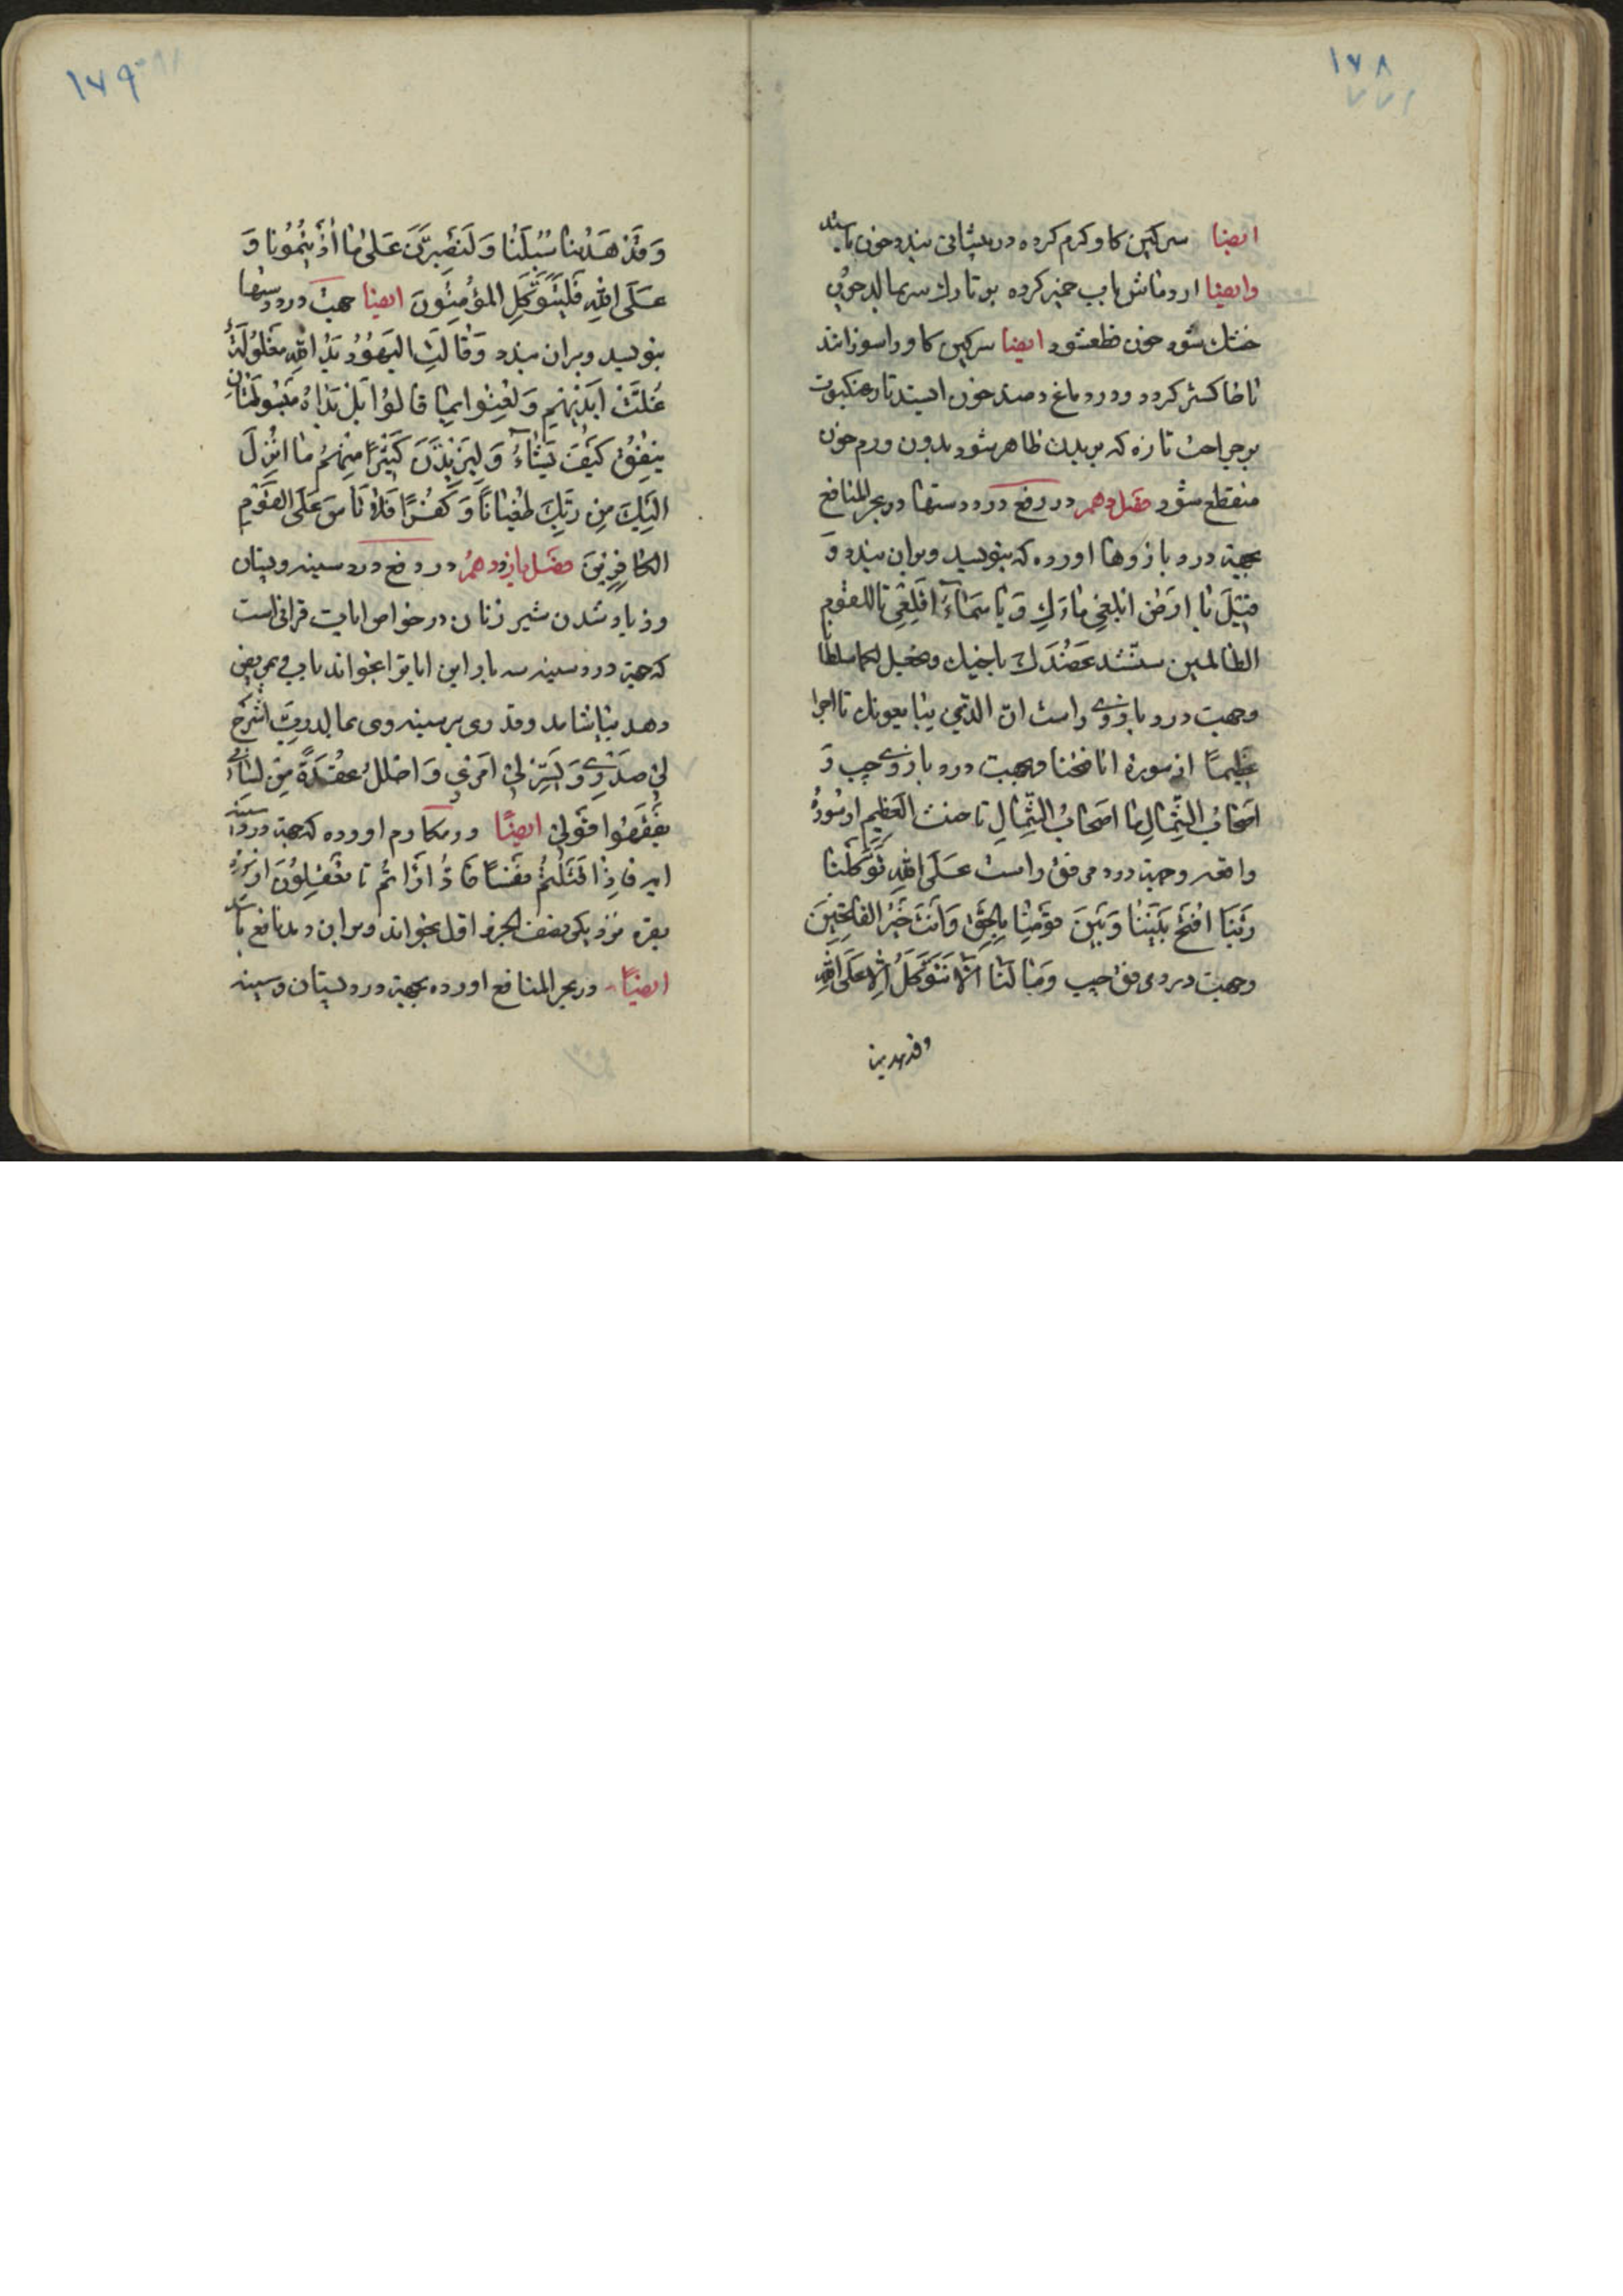 ١٧٨
ایضا سرکین کاو کرم کرده در پیشانی بندد خون باستد
وایضا ارد ماش باب خمیر کرده بر تارک سر بمالد چون
خشک شود خون قطع شود ایضا سرکین کاو را بسوزانند
تا خاکستر کردد و در دماغ دمند خون ایستد تار عنکبوت
بر جراحت تازه که بر بدن ظاهر شود بدون ورم خون
منقطع شود فصل دهم در رفع درد دستها در بحر المنافع
بجهة درد بازوها اورده که بنویسد و بران بندد وَ
قیلَ یا ارَضُ ابلَعی ماءَکِ وَ یا سَماءُ اَقلِعی تا للقوم
الظالمین سنشد عَضُدَکَ باخیک و نجعل لکما سلطانا
وجهت درد بازوی راست انّ الذین یبایعونک تا اجرا
عظیماً از سورهٔ انا فتحنا و بجهت درد بازوی چپ وَ
اَصحابُ الشِّمالِ ما اَصحابُ الشِّمالِ تا حنث العَظیمِ از سورهٔ
واقعه وجهة درد مرفق راست عَلَی اللهِ تَوَکَّلنا
رَبَّنَا افتَح بَینَنا وَ بَینَ قَومِنا بِالحَقِّ وَ اَنتَ خَیرُ الفاتِحینَ
وجهت درد مرفق چپ وَ ما لَنا اَلّا نَتَوَکَّلَ عَلَی اللهِ
وقد هدینا
١٧٩
وَ قَد هَدینا سُبُلَنا وَ لَنَصبِرَنَّ عَلی ما اُذَیتُمُونا وَ
عَلَی اللهِ فَلیَتَوَکَّلِ المُؤمِنُونَ ایضا جهت درد دستها
بنویسد و بران بندد وَ قالَتِ الیَهُودُ یَدُ اللهِ مَغلُولَةٌ
غُلَّت اَیدیهِم وَ لُعِنُوا بِما قالُوا بَل یَداهُ مَبسُوطَتانِ
یُنفِقُ کَیفَ یَشاءُ وَ لَیَزیدَنَّ کَثیراً مِنهُم ما اُنزِلَ
اِلَیکَ مِن رَبِّکَ طُغیاناً وَ کُفراً فَلا تَأسَ عَلَی القَومِ
الکافِرینَ فصل یازدهم در رفع درد سینه و پستان
و زیاد شدن شیر زنان در خواص ایات قرانی است
که جهة درد سینه سه بار این ایات را بخواند باب و بمریض
دهد بیاشامد و قدری بر سینه وی بمالد ربِّ اشرَح
لی صَدری وَ یَسِّر لی اَمری وَ احلُل عُقدَةً مِن لِسانی
یَفقَهُوا قَولی ایضاً در مکارم اورده که جهة درد سینه
ایه فاِذ قَتَلتُم نَفساً فَادّارَاتُم تا تَعقِلُونَ از سورهٔ
بقره
ایضاً در بحر المنافع اورده بجهة درد پستان و سینه